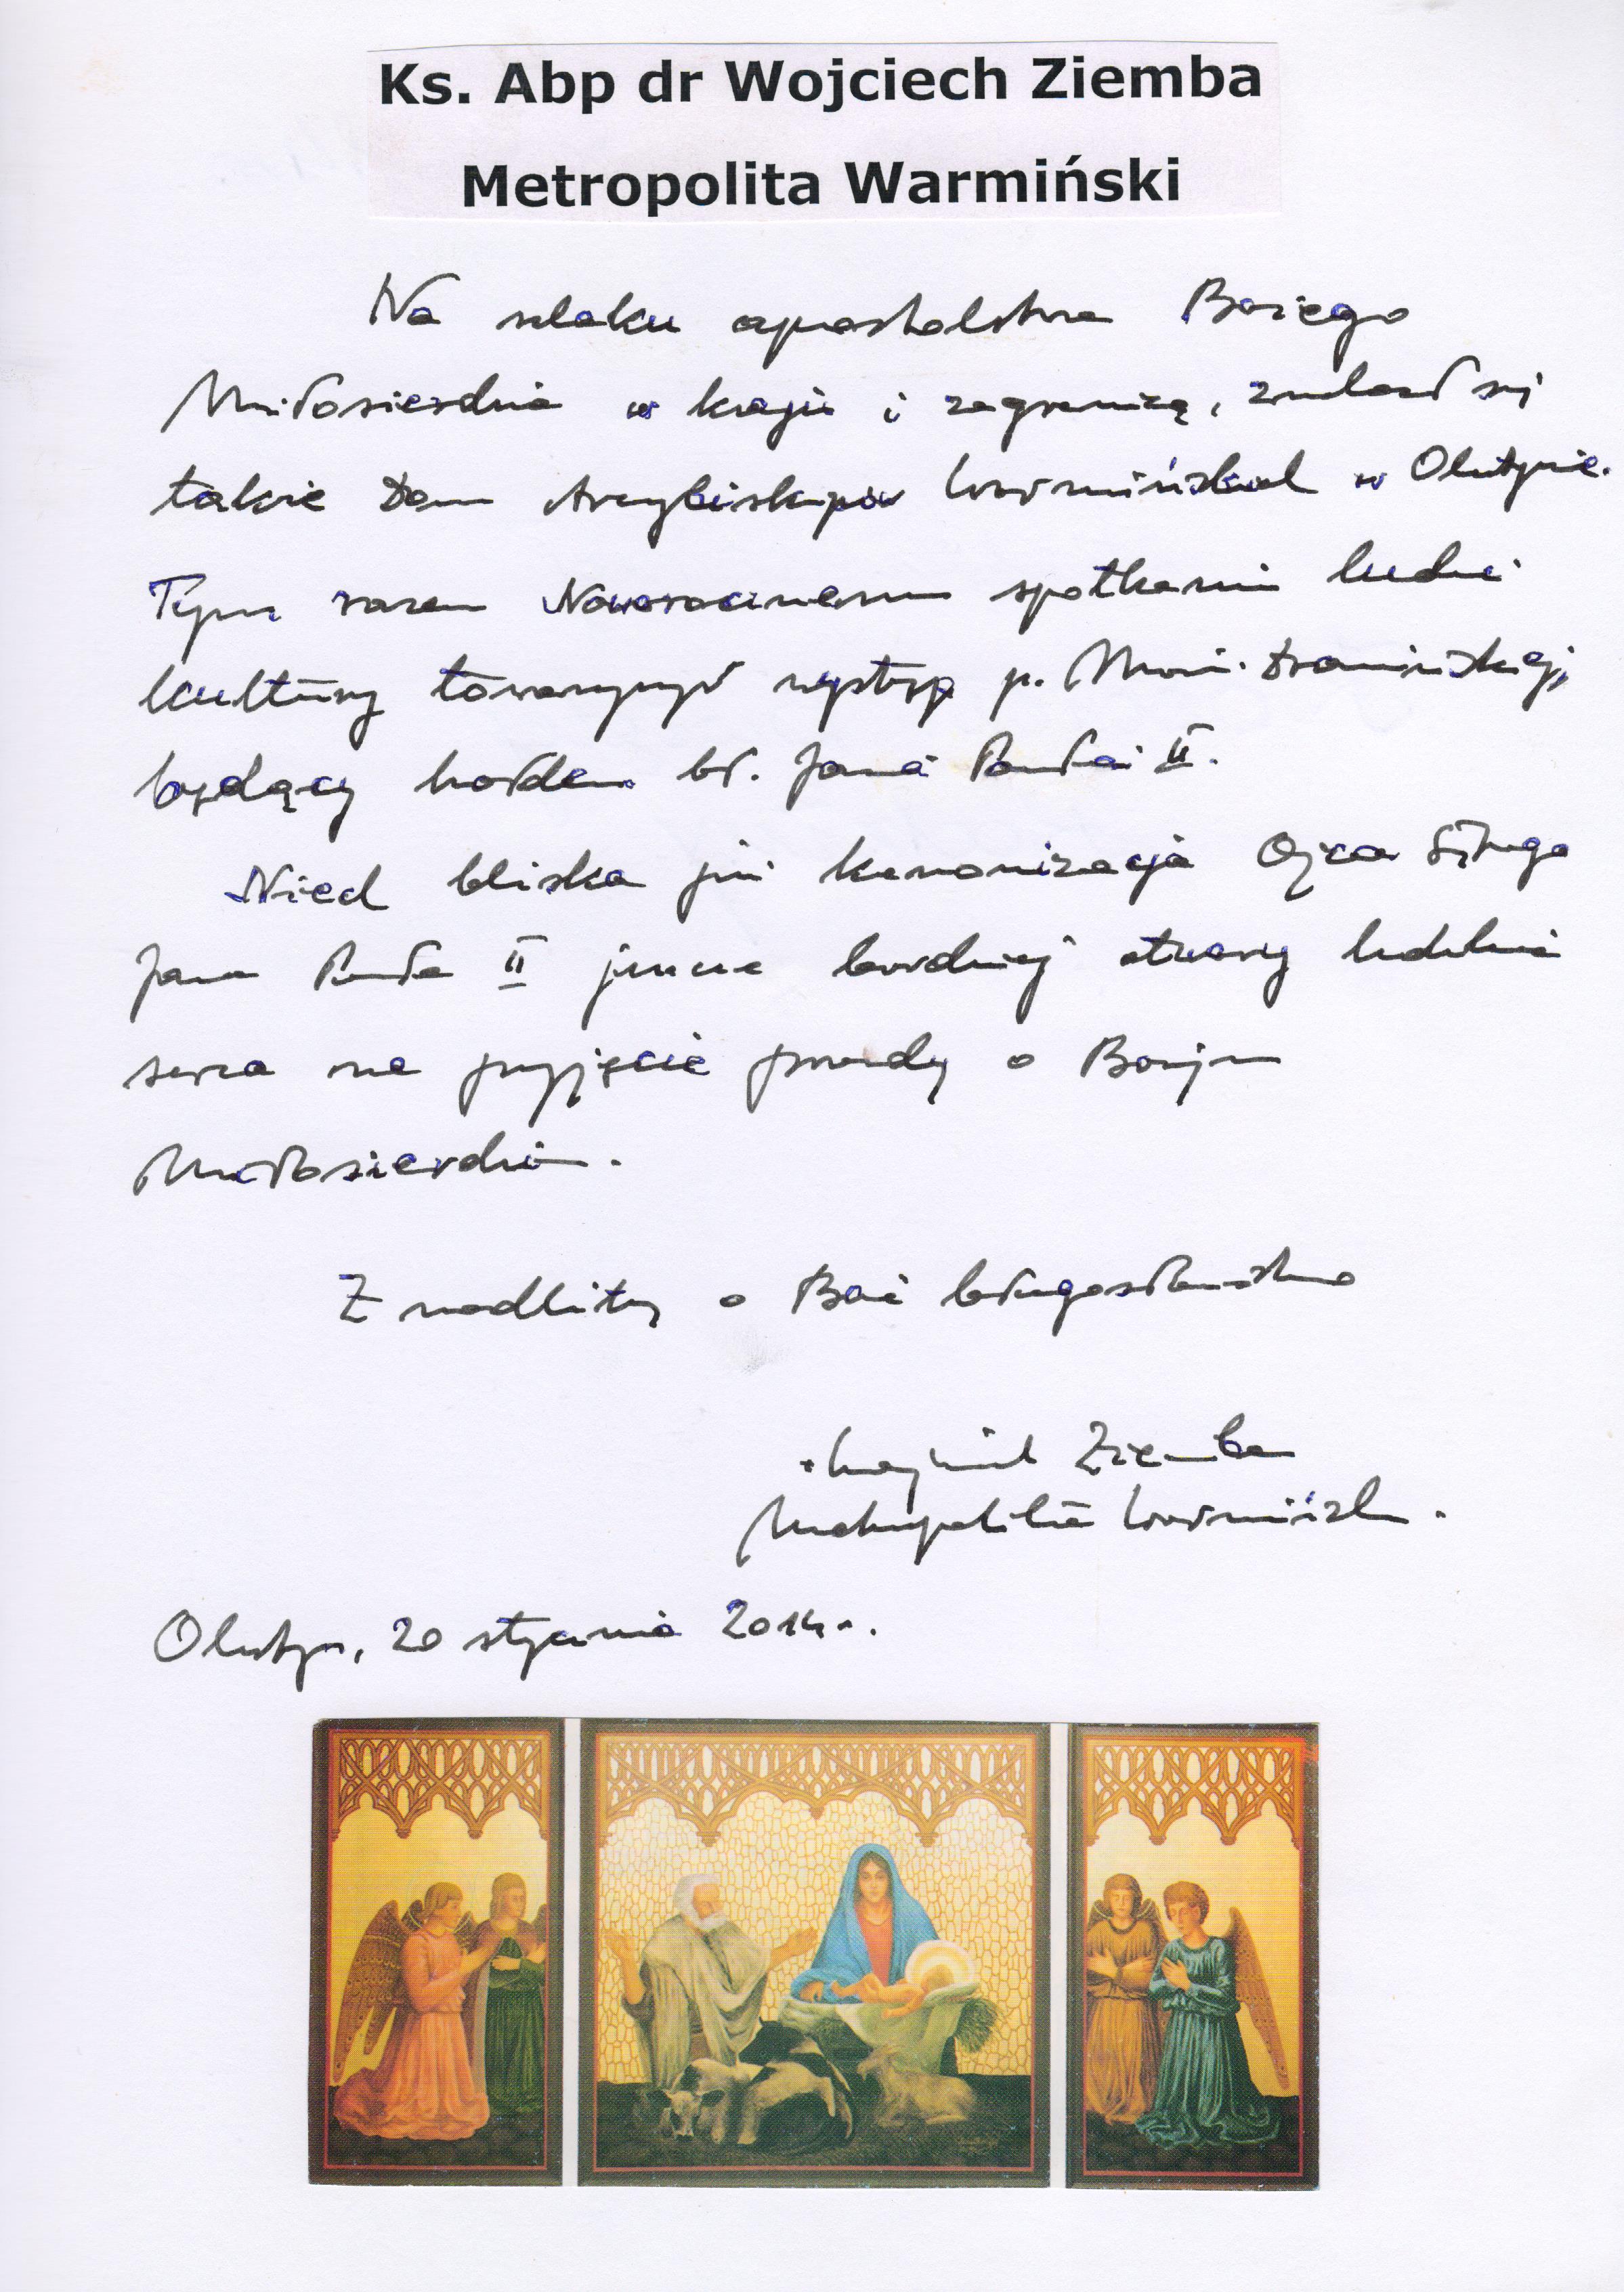 Ks. Abp dr Wojciech Ziemba
Metropolita Warmiński
Na szlaku apostolstwa Bożego
Miłosierdzia w kraju i zagranicą, znalazł się
także Dom Arcybiskupów Warmińskich w Olsztynie.
Tym razem Noworocznemu spotkaniu ludzi
kultury towarzyszył występ p.
będący hołdem bł. Jana Pawła II.
Niech bliska już kanonizacja Ojca Świętego
Jana Pawła II jeszcze bardziej otworzy ludzkie
serca na przyjęcie prawdy o Bożym
Miłosierdziu.
Z modlitwą o Boże błogosławieństwo
+ Wojciech Ziemba
Metropolita Warmiński
Olsztyn, 20 stycznia 2014 r.